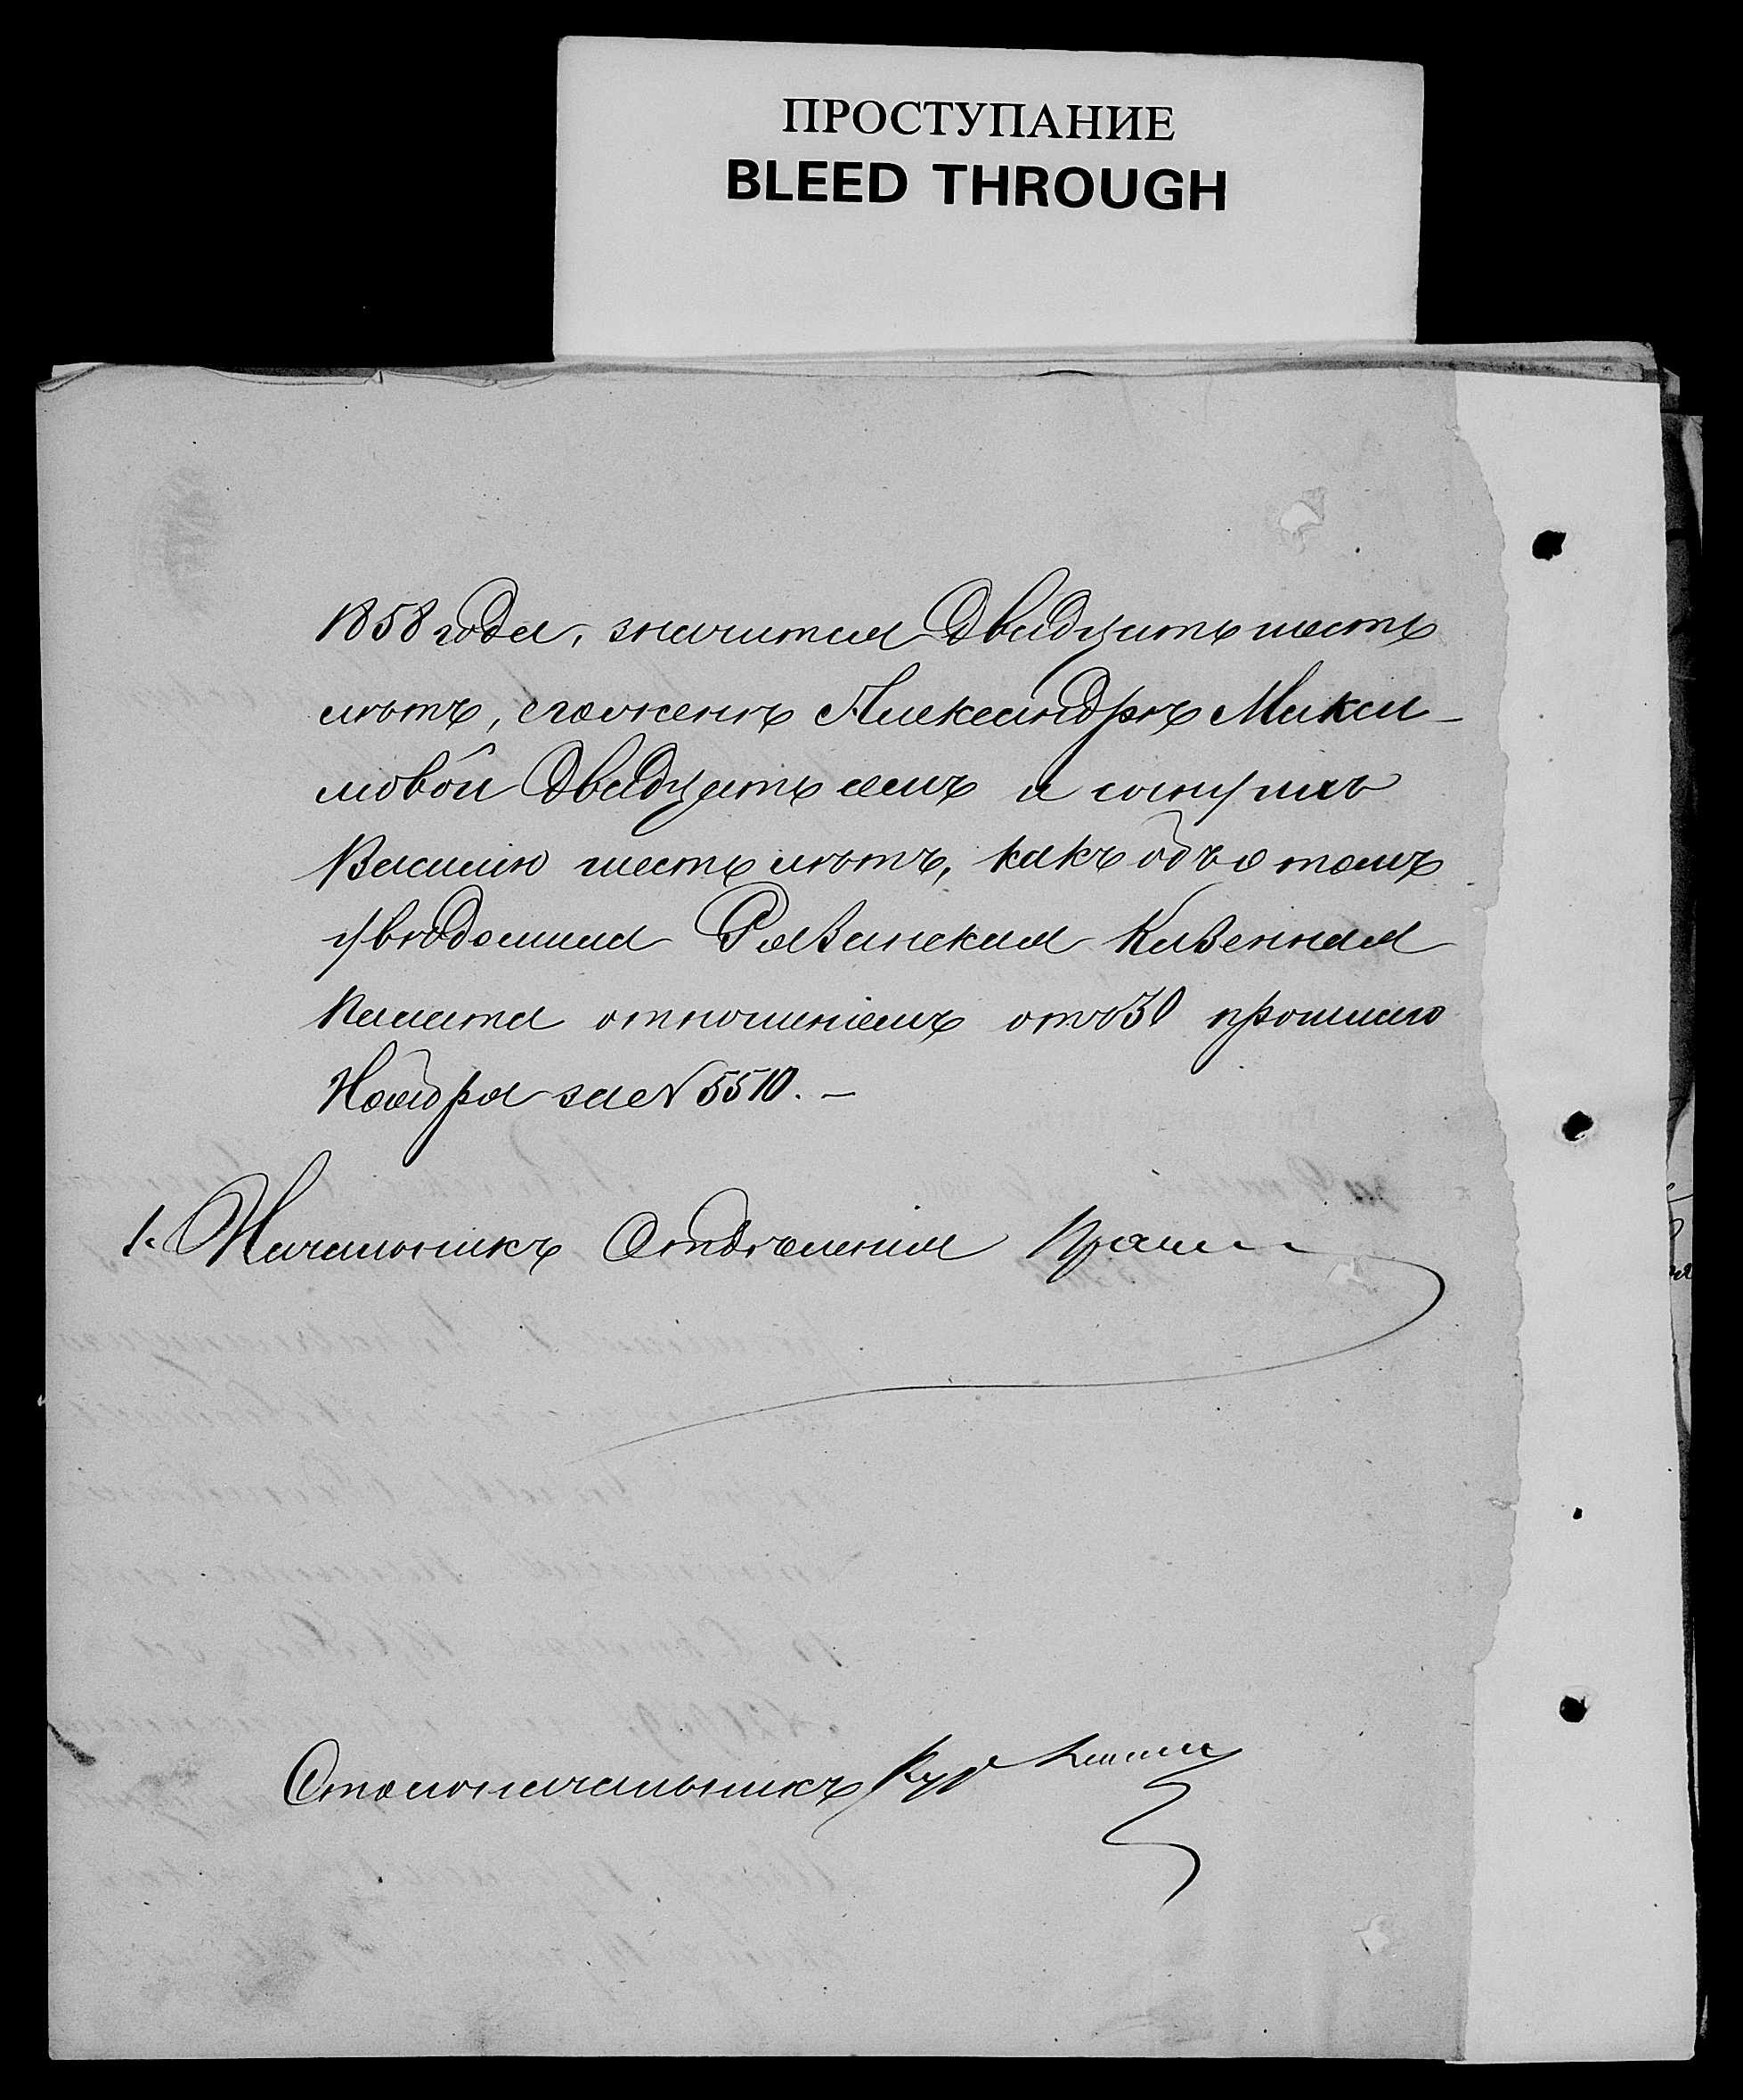 ПРОСТУПАНИЕ
BLEED THROUGH
1858 года, значится двадцать шесть
лѣтъ, его женѣ Александрѣ Макси-
мовой двадцать семь и сыну ихъ
Василию шесть лѣтъ, какъ объ томъ
увѣдомила Рязанская Казенная
Палата отношеніемъ отъ 30 прошлаго
Ноября за № 5510. –
Начальникъ Отдѣленія
Столоначальникъ